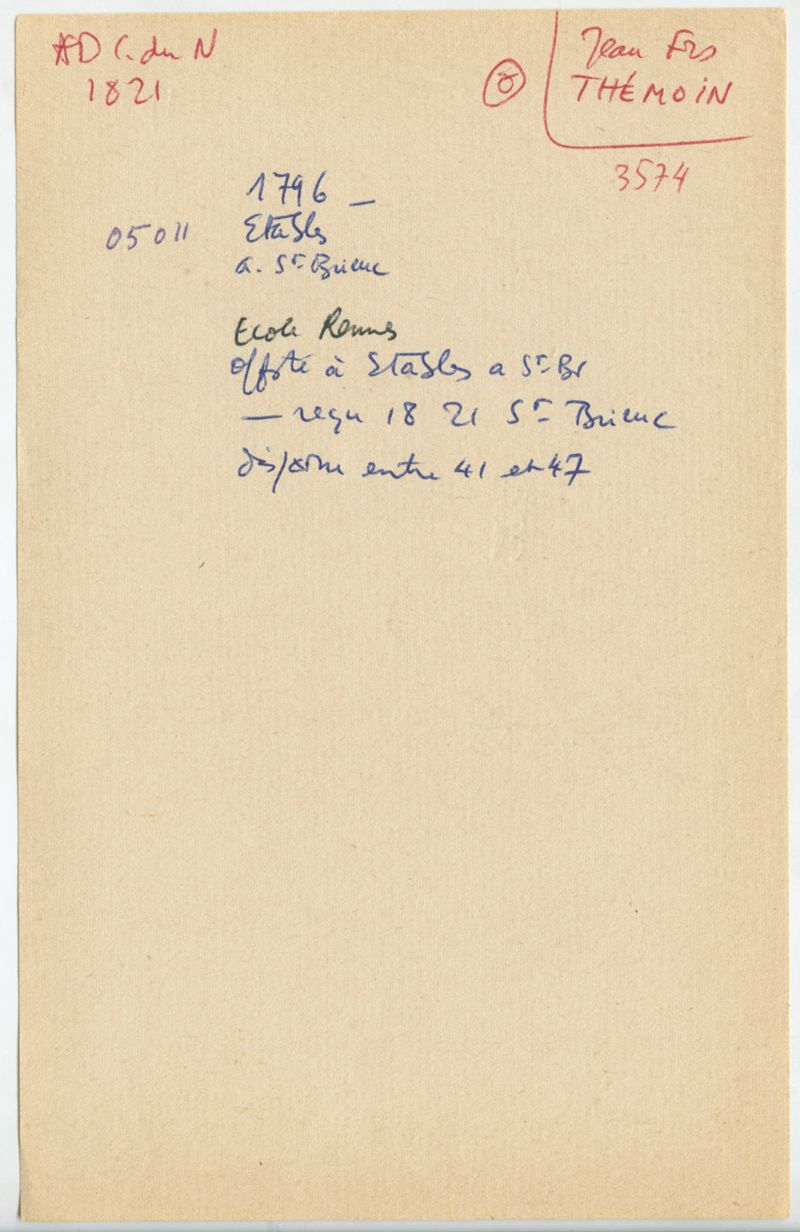 AD C. du N
1821
8
Jean Frs
THÉMOIN
3574
1796 _
05011
Etables
a. St Brieuc
Ecole Rennes
à Etables a St Br
— reçu 1821 St Brieuc
entre 41 et 47